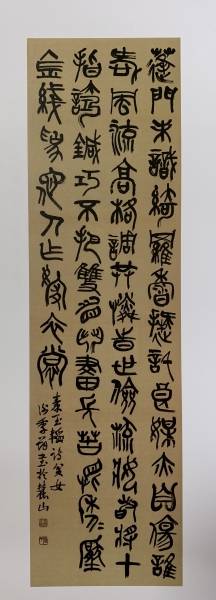 蓬門未識綺羅香擬託良媒亦自傷誰
愛風流高格調共憐時世儉梳妝敢將十
指誇鍼巧不把雙眉鬥畫長苦恨年々壓
金綫為他人作嫁衣裳
秦玉韜詩貧女
於麓山